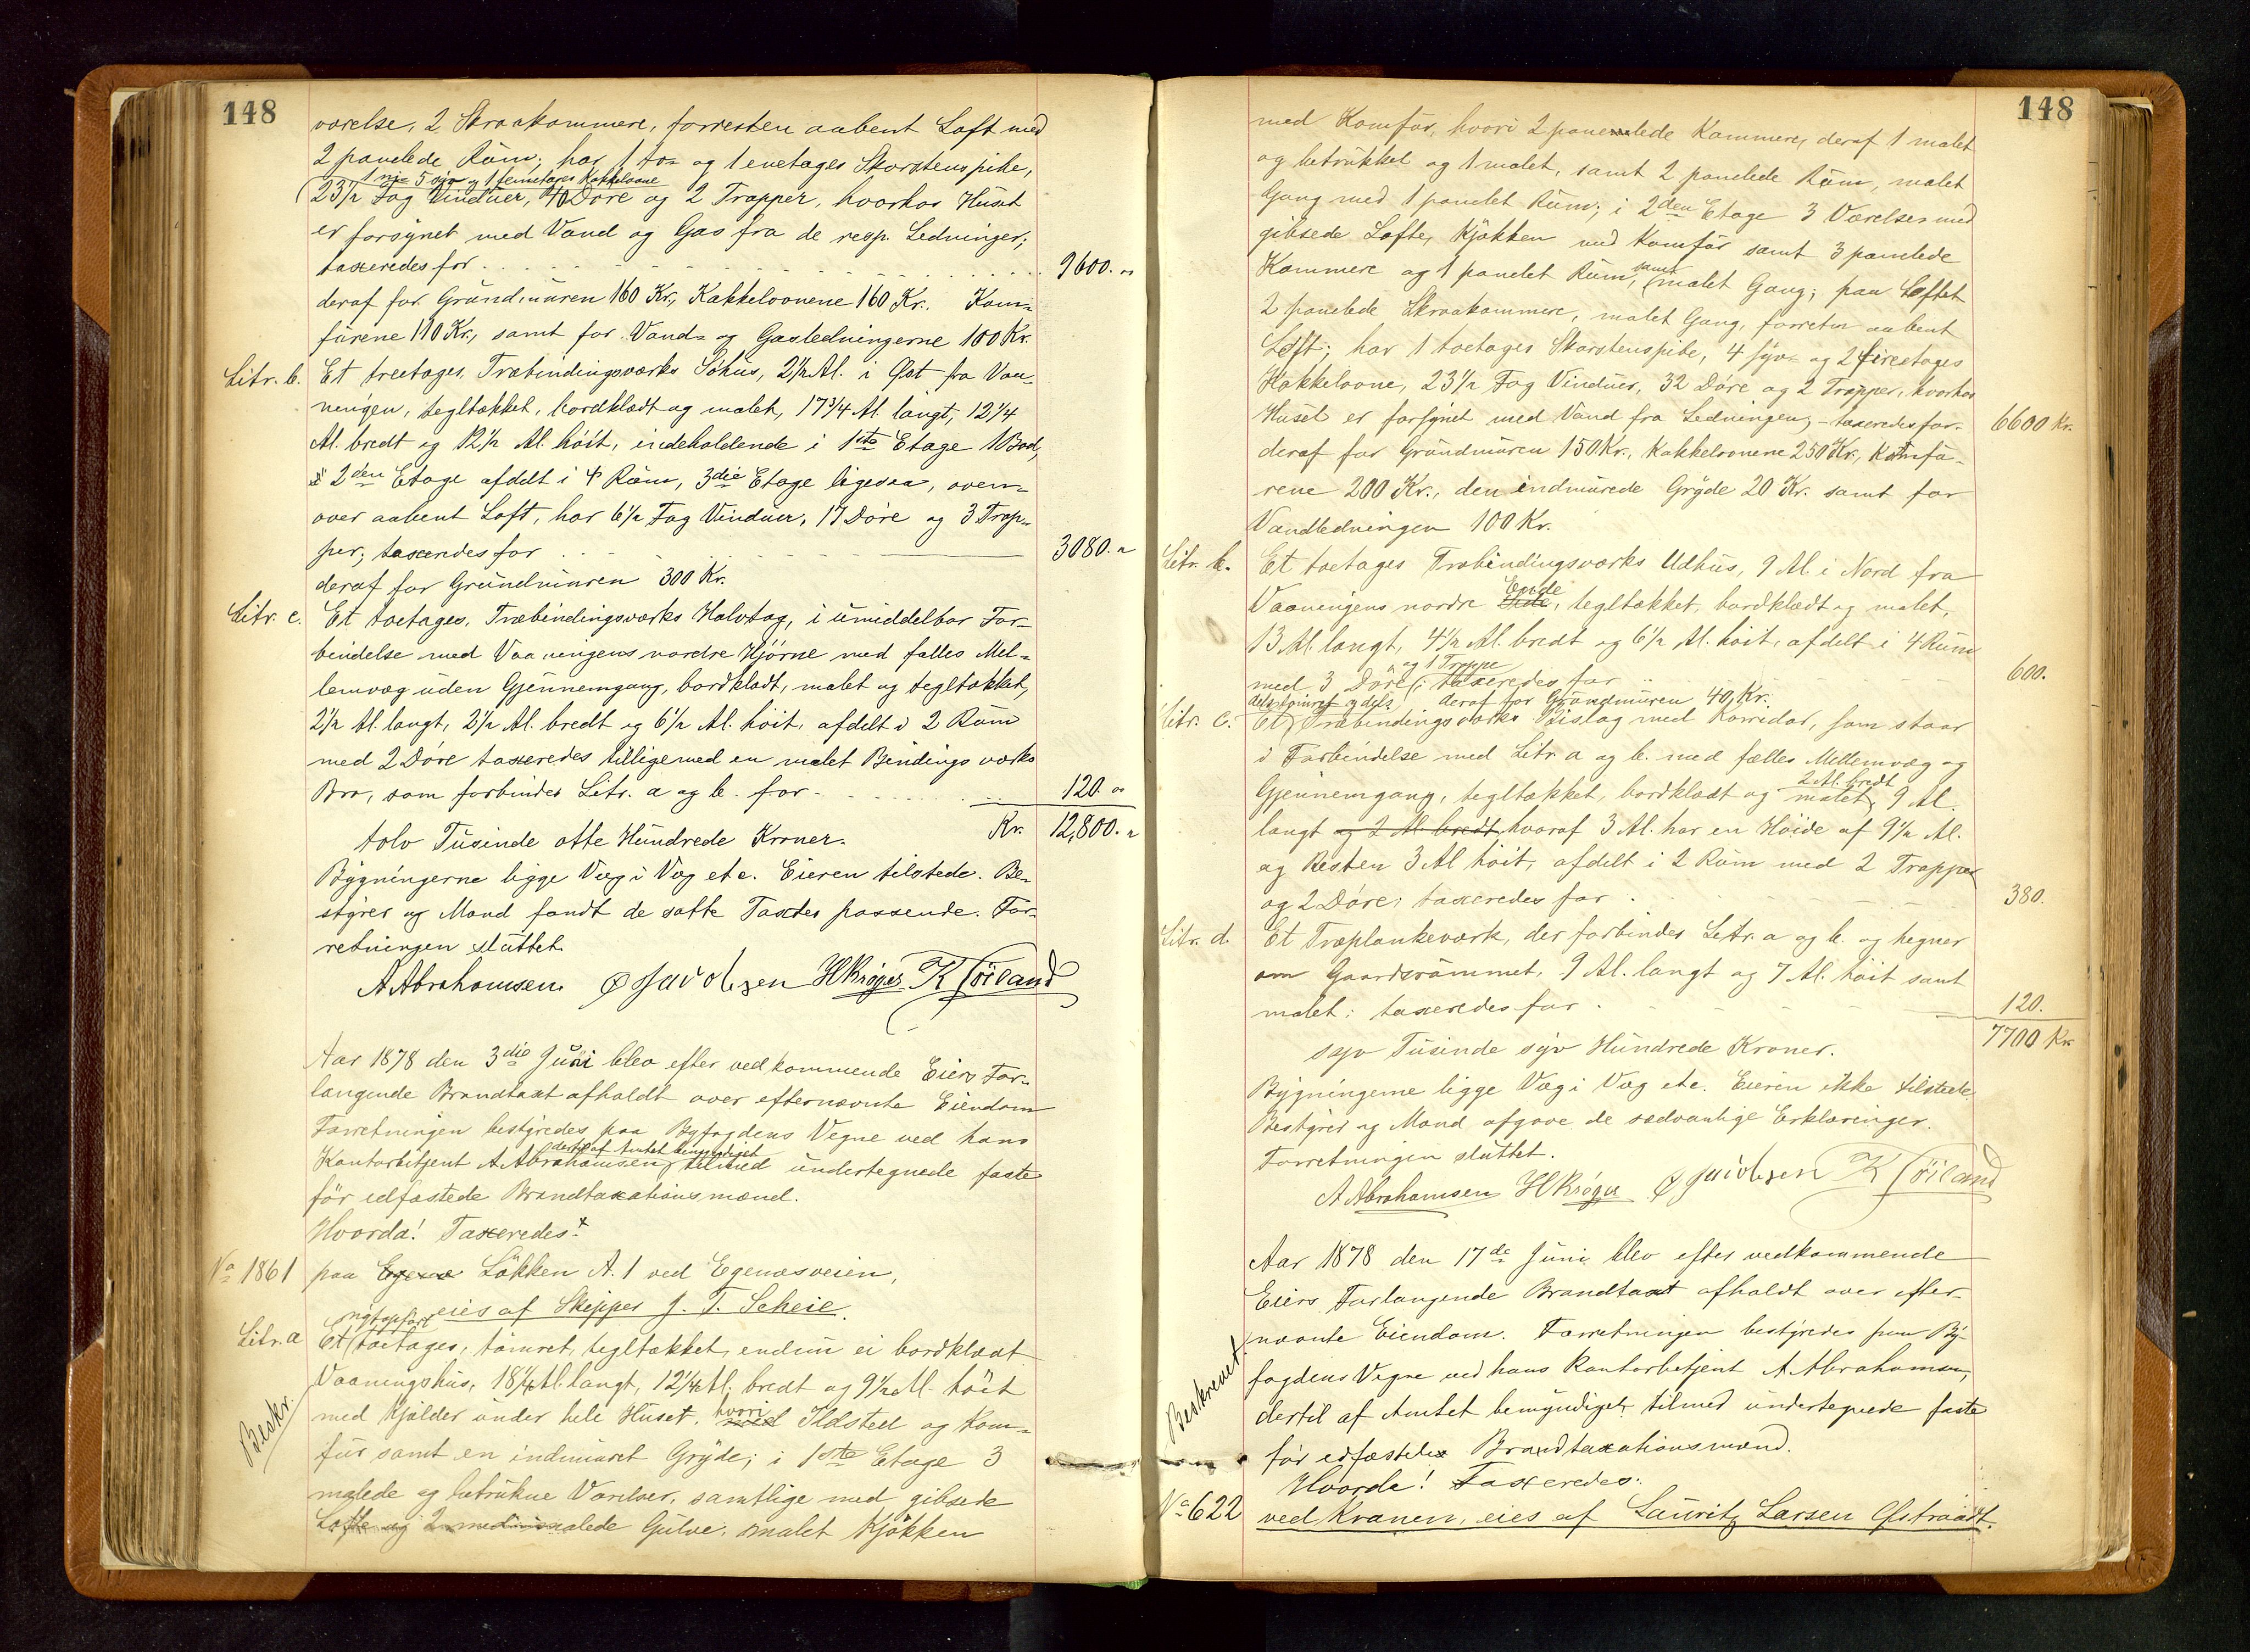 148
værelse, 2 Skraakammere, forresten aabent Loft med
2 panelede Rum; har 1 to- og 1 enetages Skorstenspibe,
1 ni- 5 syv- og 1 femetages Kakkelovne
23½ Fag Vinduer, 40 Døre og 2 Trapper, hvorhos Huset
er forsynet med Vand og Gas fra de resp. Ledninger;
taxeredes for 9600. "
deraf for Grundmuren 160 Kr., Kakkelovnene 160 Kr., Kom-
fürene 110 Kr., samt for Vand- og Gasledningerne 100 Kr.
Litr. b. Et treetages, Træbindingsværks Söhus, 2½ Al. i Øst fra Vaa-
ningen, tegltækket, bordklædt og malet, 17¾ Al. langt, 12¼
Al. bredt og 12½ Al. höit, indeholdende i 1ste Etage 1 Bod,
i 2den Etage afdelt i 4 Rum, 3die Etage ligesaa, oven-
over aabent Loft, har 6½ Fag Vinduer, 17 Döre og 3 Trap-
per; taxeredes for 3080. "
deraf for Grundmuren 300 Kr.
Litr. c. Et toetages, Træbindingsværks Halvtag, i umiddelbar For-
bindelse med Vaaningens nordre Hjörne med fælles Mel-
lemvæg uden Gjennemgang, bordklædt, malet og tegltækket,
2½ Al. langt, 2½ Al. bredt og 6½ Al. höit, afdelt i 2 Rum
med 2 Döre taxeredes tilligemed en malet Bindingsværks
Bro, som forbinder Litr. a og b. for 120. "
Kr. 12,800. "
tolv Tusinde otte Hundrede Kroner.
Bygningerne ligge Væg i Væg etc. Eieren tilstede. Be-
styrer og Mænd fandt de satte Taxter passende. For-
retningen sluttet.
A Abrahamsen. O Jacobsen H Krøger K Töiland
Aar 1878 den 3die Juni blev efter vedkommende Eiers For-
langende Brandtaxt afholdt over efternævnte Eiendom
Forretningen bestyredes paa Byfogdens Vegne ved hans
dertil af Amtet bemyndiget
Kontorbetjent A Abrahamsen, tilmed undertegnede faste
för edfæstede Brandtaxationsmænd.
Hvorda! Taxeredes:
No 1861 paa Egenæs Løkken A. 1 ved Egenæsveien,
eies af Skipper J. T. Scheie.
nyopført
Litr. a Et toetages, tømret, tegltækket, endnu ei bordklædt
Vaaningshus, 18¼ Al. langt, 12¼ Al. bredt og 9½ Al. höit
Beskr.
med Kjælder under hele Huset, hvori Ildsted og Kom-
für samt en indmuret Gryde; i 1ste Etage 3
malede og betrukne Værelser, samtlige med gibsede
Lofte og 2 med malede Gulve, malet Kjökken
148
med Komfür, hvori 2 panelede Kammere, deraf 1 malet
og betrukket og 1 malet, samt 2 panelede Rum, malet
Gang med 1 panelet Rum; i 2den Etage 3 Værelser med
gibsede Lofte, Kjökken med Komfür samt 3 panelede
Kammere og 1 panelet Rum, samt malet Gang; paa Loftet
2 panelede Skraakammere, malet Gang, forresten aabent
Loft; har 1 toetages Skorstenspibe, 4 syv- og 2 fireetages
Kakkelovne, 23½ Fag Vinduer, 32 Döre og 2 Trapper, hvorhos
Huset er forsynet med Vand fra Ledningen, - taxeredes for - 6600 Kr.
deraf for Grundmuren 150 Kr., Kakkelovnene 250 Kr., Komfü-
rene 200 Kr., den indmurede Gryde 20 Kr. samt for
Vandledningen 100 Kr.
Litr. b. Et toetages Træbindingsværks Udhus, 9 Al. i Nord fra
Vaaningens nordre Side Ende, tegltækket, bordklædt og malet,
13 Al. langt, 4½ Al. bredt og 6½ Al. höit, afdelt i 4 Rum
og 1 Trappe
med 3 Döre; taxeredes for 600.
deraf for Grundmuren 40 Kr.
dels tømret og dels
Litr. c. Et Træbindingsværks Bislag med Korridor, som staar
i Forbindelse med Litr. a og b. med fælles Mellemvæg og
2 Al. bredt
Gjennemgang, tegltækket, bordklædt og malet, 9 Al.
langt og 2 Al. bredt, hvoraf 3 Al. har en Höide af 9½ Al.
og Resten 3 Al höit, afdelt i 2 Rum med 2 Trapper
og 2 Döre; taxeredes for 380.
Litr. d. Et Træplankeværk, der forbinder Litr. a og b. og hegner
om Gaardsrummet, 9 Al. langt og 7 Al. höit samt
malet; taxeredes for 120.
7700 Kr
syv Tusinde syv Hundrede Kroner.
Bygningerne ligge Væg i Væg etc. Eieren ikke tilstede.
Bestyrer og Mænd afgave de sædvanlige Erklæringer.
Forretningen sluttet.
A Abrahamsen H Krøger O Jacobsen K Töiland
Aar 1878 den 17de Juni blev efter vedkommende
Eiers Forlangende Brandtaxt afholdt over efter-
nævnte Eiendom. Forretningen bestyredes paa By-
fogdens Vegne ved hans Kontorbetjent A Abrahamsen,
Beskrevet.
dertil af Amtet bemyndiget, tilmed undertegnede faste
för edfæstede Brandtaxationsmænd.
Hvorda! Taxeredes:
No 622 ved Kranen, eies af Lauritz Larsen Østraadt.